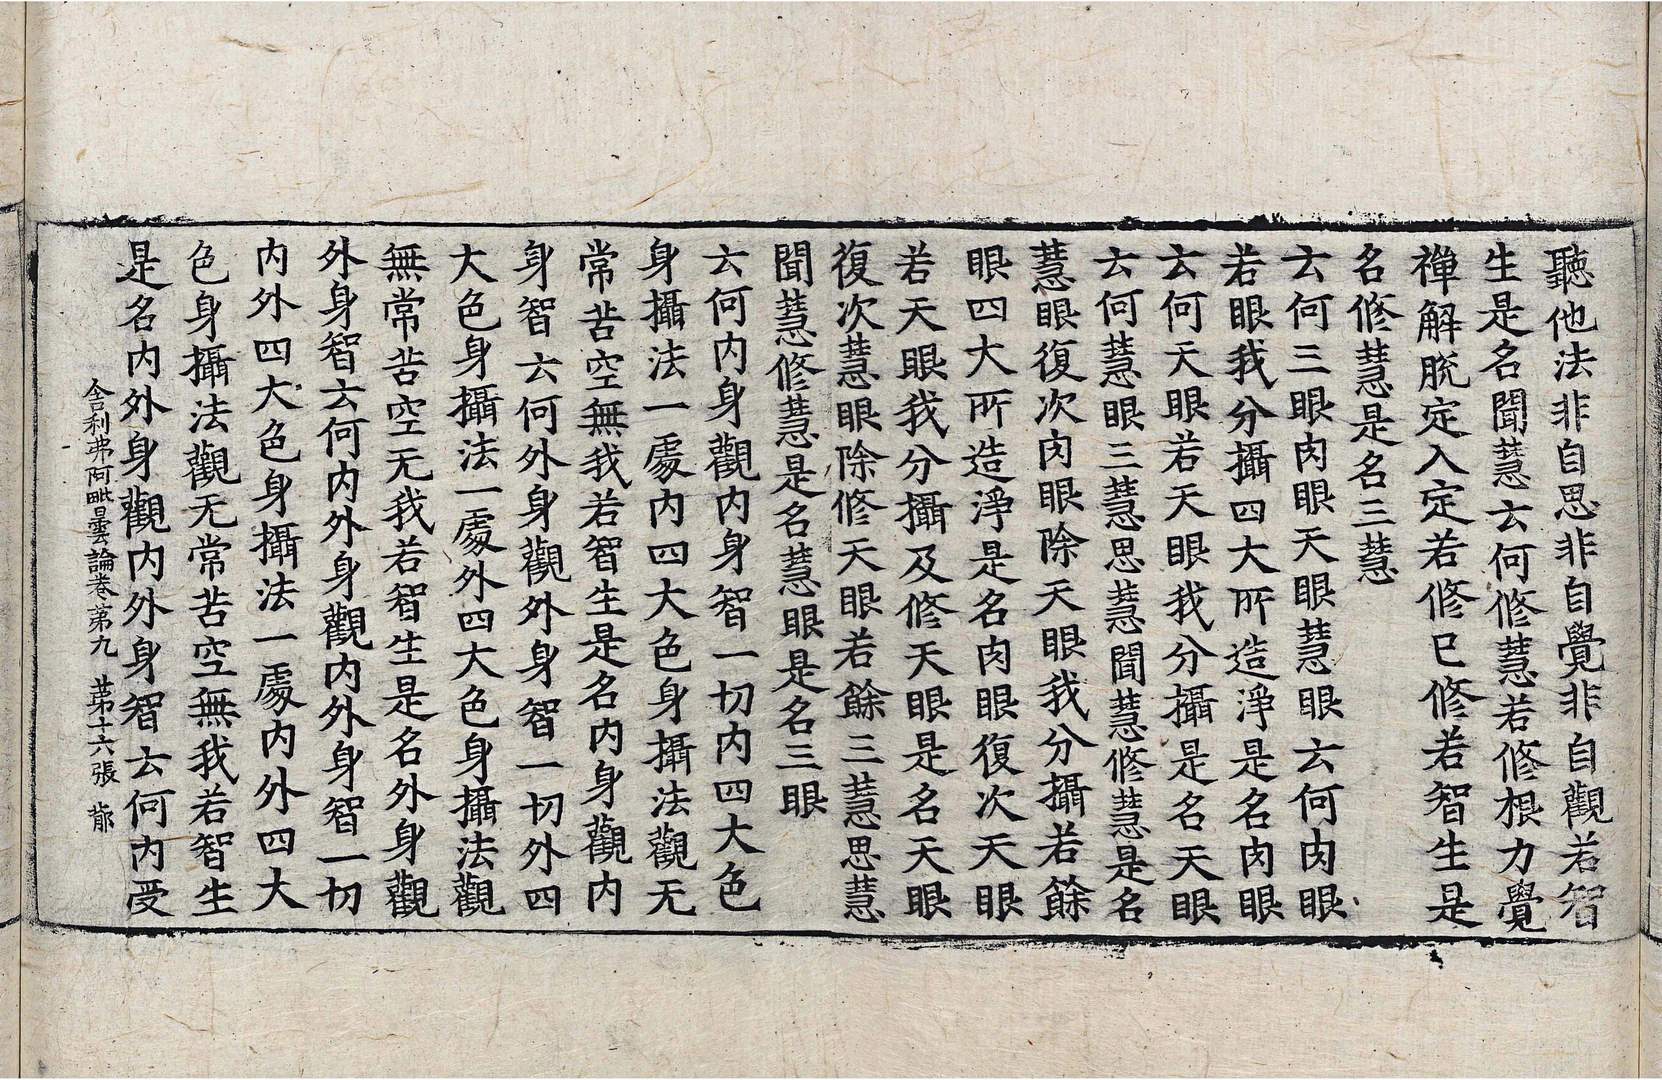 聽他法非自思非自覺非自觀若智
生是名聞慧云何修慧若修根力覺
禪解脫定入定若修已修若智生是
名修慧是名三慧
云何三眼肉眼天眼慧眼云何肉眼
若眼我分攝四大所造淨是名肉眼
云何天眼若天眼我分攝是名天眼
云何慧眼三慧思慧聞慧修慧是名
慧眼復次肉眼除天眼我分攝若餘
眼四大所造淨是名肉眼復次天眼
若天眼我分攝及修天眼是名天眼
復次慧眼除修天眼若餘三慧思慧
聞慧修慧是名慧眼是名三眼
云何內身觀內身智一切內四大色
身攝法一處內四大色身攝法觀无
常苦空無我若智生是名內身觀內
身智云何外身觀外身智一切外四
大色身攝法一處外四大色身攝法觀
無常苦空无我若智生是名外身觀
外身智云何內外身觀內外身智一切
內外四大色身攝法一處內外四大
色身攝法觀无常苦空無我若智生
是名內外身觀內外身智云何內受
舍利弗阿毗曇論卷第九 第十六張